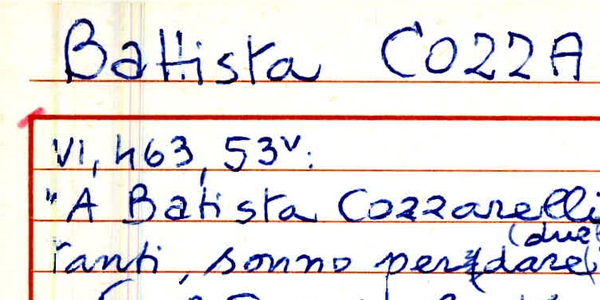 Battista COZZA
VI, 463, 53v:
"A Batista Cozzarelli
(due
tanti, sonno per dare